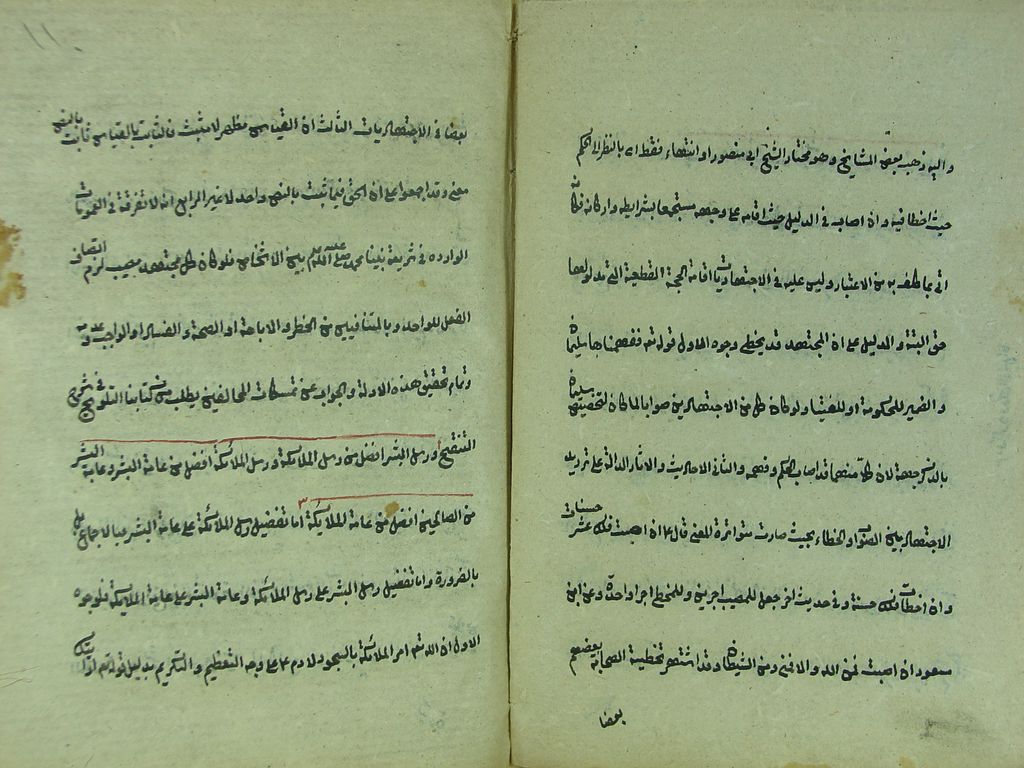 واليه ذهب بعض المشايخ وهو مختار الشيخ ابي منصور او انتهاء فقط اى بالنظر الى الحكم
حيث اخطا فيه وان اصاب في الدليل حيث اقامه على وجهه مستجمعا بشرايطه واركانه فكان
اتى بما كلف به من الاعتبار وليس عليه في الاجتهاديات اقامة الحجة القطعية التى مدلولها
حق البتة والدليل على ان المجتهد قد يخطى وجوه الاول قوله تع ففهمناها سليمان
والضمير للحكومة او للفتيا ولو كان كل من الاجتهادين صوابا لما كان لتخصيص سليمان
بالذكر جهة لان كلا منهما قد اصاب الحكم وفهمه والثانى الاحاديث والاثار الدالة على ترديد
الاجتهاد بين الصواب والخطاء بحيث صارت متواترة المعنى قال ۴ ان اصبت فلك عشر حسنات
وان اخطات فلك حسنة وفي حديث اخر جعل للمصيب اجرين وللمخطى اجرا واحدا وعن ابن
مسعود ان اصبت فمن الله والا فمنى ومن الشيطان وقد اشتهر تخطية الصحابة بعضهم
بعضا
١١
بعضا في الاجتهاديات الثالث ان القياس مظهر لا مثبت فالثابت بالقياس ثابت بالنص
معنى وقد اجمعوا على ان الحق فيما ثبت بالنص واحد لا غير الرابع انه لا تفرقة في العمومات
الواردة في شريعة نبينا محمد صلى الله عليه وسلم بين الاشخاص فلو كان كل مجتهد مصيب لزم اتصاف
الفعل الواحد بالمتنافيين من الخطر والاباحة او الصحة والفساد او الواجب وعدمه
وتمام تحقيق هذه الادلة والجواب عن تمسكات المخالفين يطلب من كتابنا التلويح في شرح
التنقيح ورسل البشر افضل من رسل الملائكة ورسل الملائكة افضل من عامة البشر وعامة البشر
من الصالحين افضل من عامة الملايكة اما تفضيل رسل الملائكة على عامة البشر فبالاجماع بل
بالضرورة واما تفضيل رسل البشر على رسل الملائكة وعامة البشر على عامة الملايكة فلوجوه
الاول ان الله تع امر الملائكة بالسجود لادم ۴ على وجه التعظيم والتكريم بدليل قوله تع ارايتك